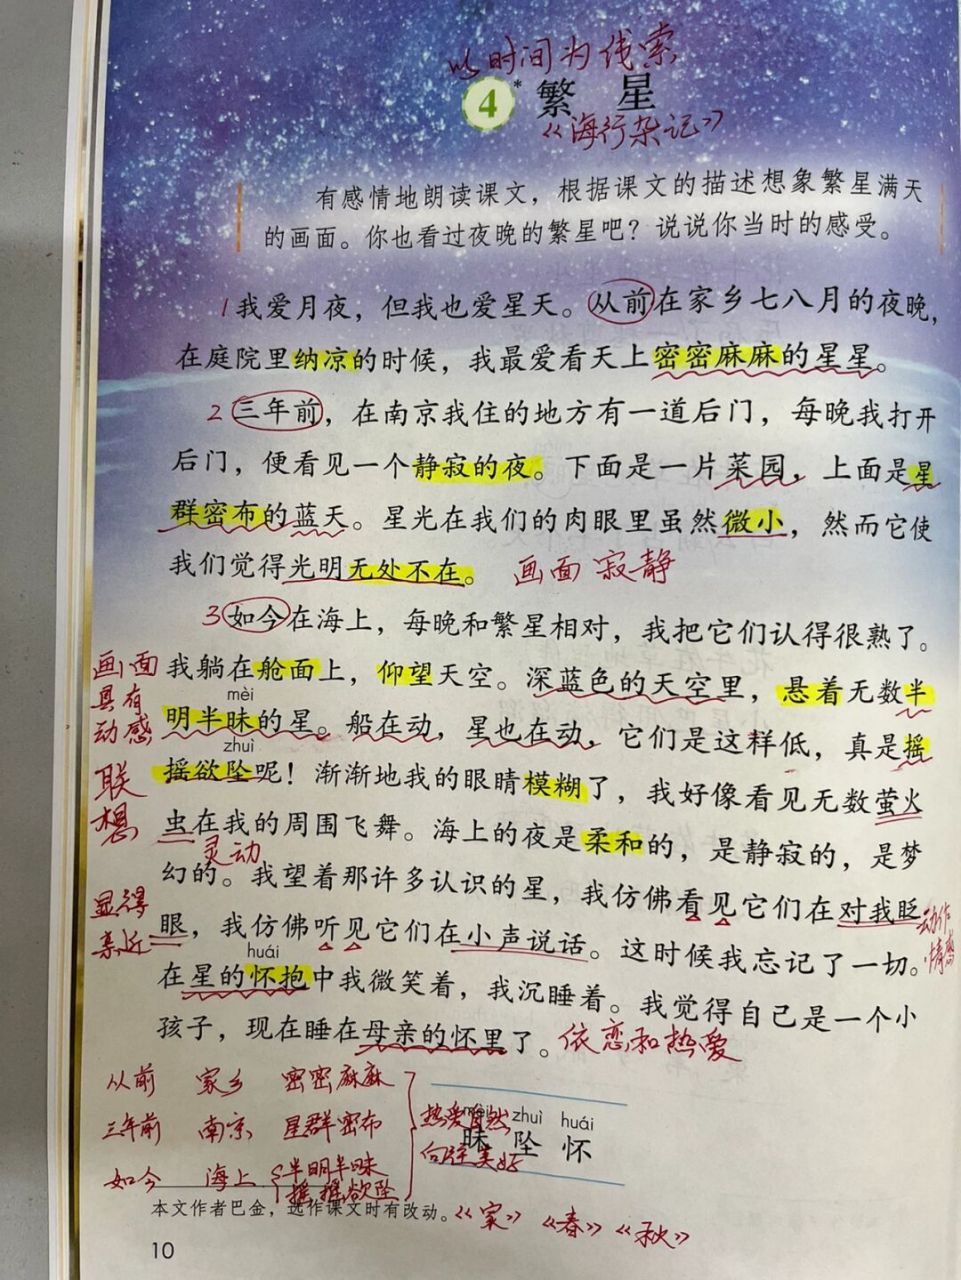 以时间为线索
4 * 繁 星
《海行杂记》
有感情地朗读课文，根据课文的描述想象繁星满天
的画面。你也看过夜晚的繁星吧？说说你当时的感受。
1 我爱月夜，但我也爱星天。从前在家乡七八月的夜晚，
在庭院里纳凉的时候，我最爱看天上密密麻麻的星星。
2 三年前，在南京我住的地方有一道后门，每晚我打开
后门，便看见一个静寂的夜。下面是一片菜园，上面是星
群密布的蓝天。星光在我们的肉眼里虽然微小，然而它使
我们觉得光明无处不在。 画面 寂静
3 如今在海上，每晚和繁星相对，我把它们认得很熟了。
画面 我躺在舱面上，仰望天空。深蓝色的天空里，悬着无数半
具有 mèi
动感 明半昧的星。船在动，星也在动，它们是这样低，真是摇
zhuì
联 摇欲坠呢！渐渐地我的眼睛模糊了，我好像看见无数萤火
想 虫在我的周围飞舞。海上的夜是柔和的，是静寂的，是梦
灵动
幻的。我望着那许多认识的星，我仿佛看见它们在对我眨
显得 眼，我仿佛听见它们在小声说话。这时候我忘记了一切。 动作
亲近 huái 情感
在星的怀抱中我微笑着，我沉睡着。我觉得自己是一个小
孩子，现在睡在母亲的怀里了。 依恋和热爱
从前 家乡 密密麻麻
三年前 南京 星群密布 热爱自然
mèi zhuì huái
昧 坠 怀
如今 海上 半明半昧 向往美好
摇摇欲坠
本文作者巴金，选作课文时有改动。《家》《春》《秋》
10